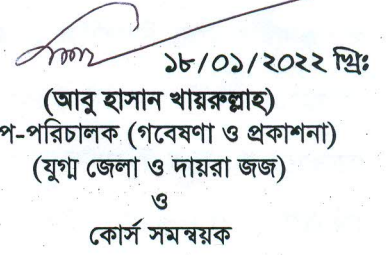 ১৮/০১/২০২২ খ্রিঃ
(আবু হাসান খায়রুল্লাহ)
প-পরিচালক (গবেষণা ও প্রকাশনা)
(যুগ্ম জেলা ও দায়রা জজ)
ও
কোর্স সমন্বয়ক